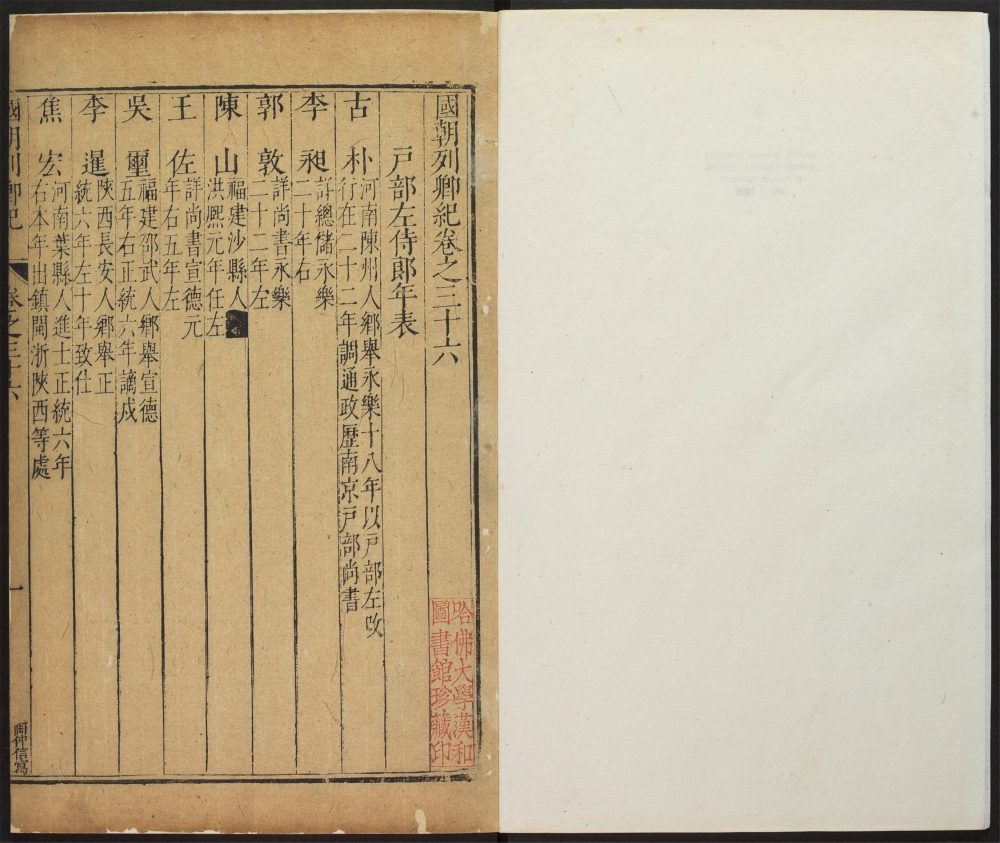 國朝列卿紀卷之三十六
戶部左侍郎年表
古朴
河南陳州人鄉舉永樂十八年以戶部左改
行在二十二年調通政歷南京戶部尚書
李昶
詳總儲永樂
二十年右
郭敦
詳尚書永樂
二十二年左
陳山
福建沙縣人
洪熙元年任左
王佐
詳尚書宣德元
年右五年左
吳璽
福建邵武人鄉舉宣德
五年右正統六年謫戍
李暹
陝西長安人鄉舉正
統六年左十年致仕
焦宏
河南葉縣人進士正統六年
右本年出鎮閩浙陝西等處
國朝列卿紀
卷之三十六
一
仲信寫
哈佛大學漢和
圖書館珍藏印